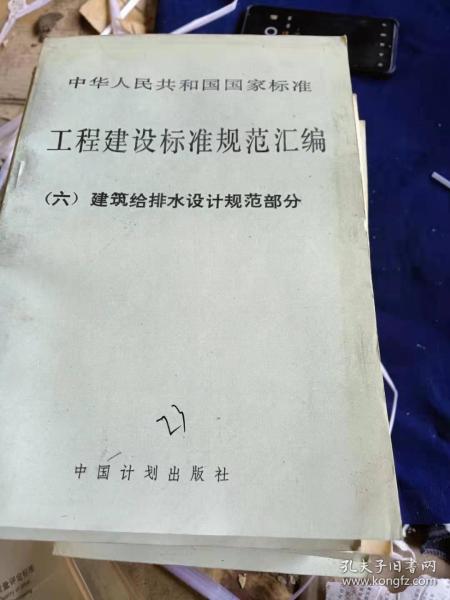 中华人民共和国国家标准
工程建设标准规范汇编
(六) 建筑给排水设计规范部分
23
中国计划出版社
孔夫子旧书网
kongfz.com